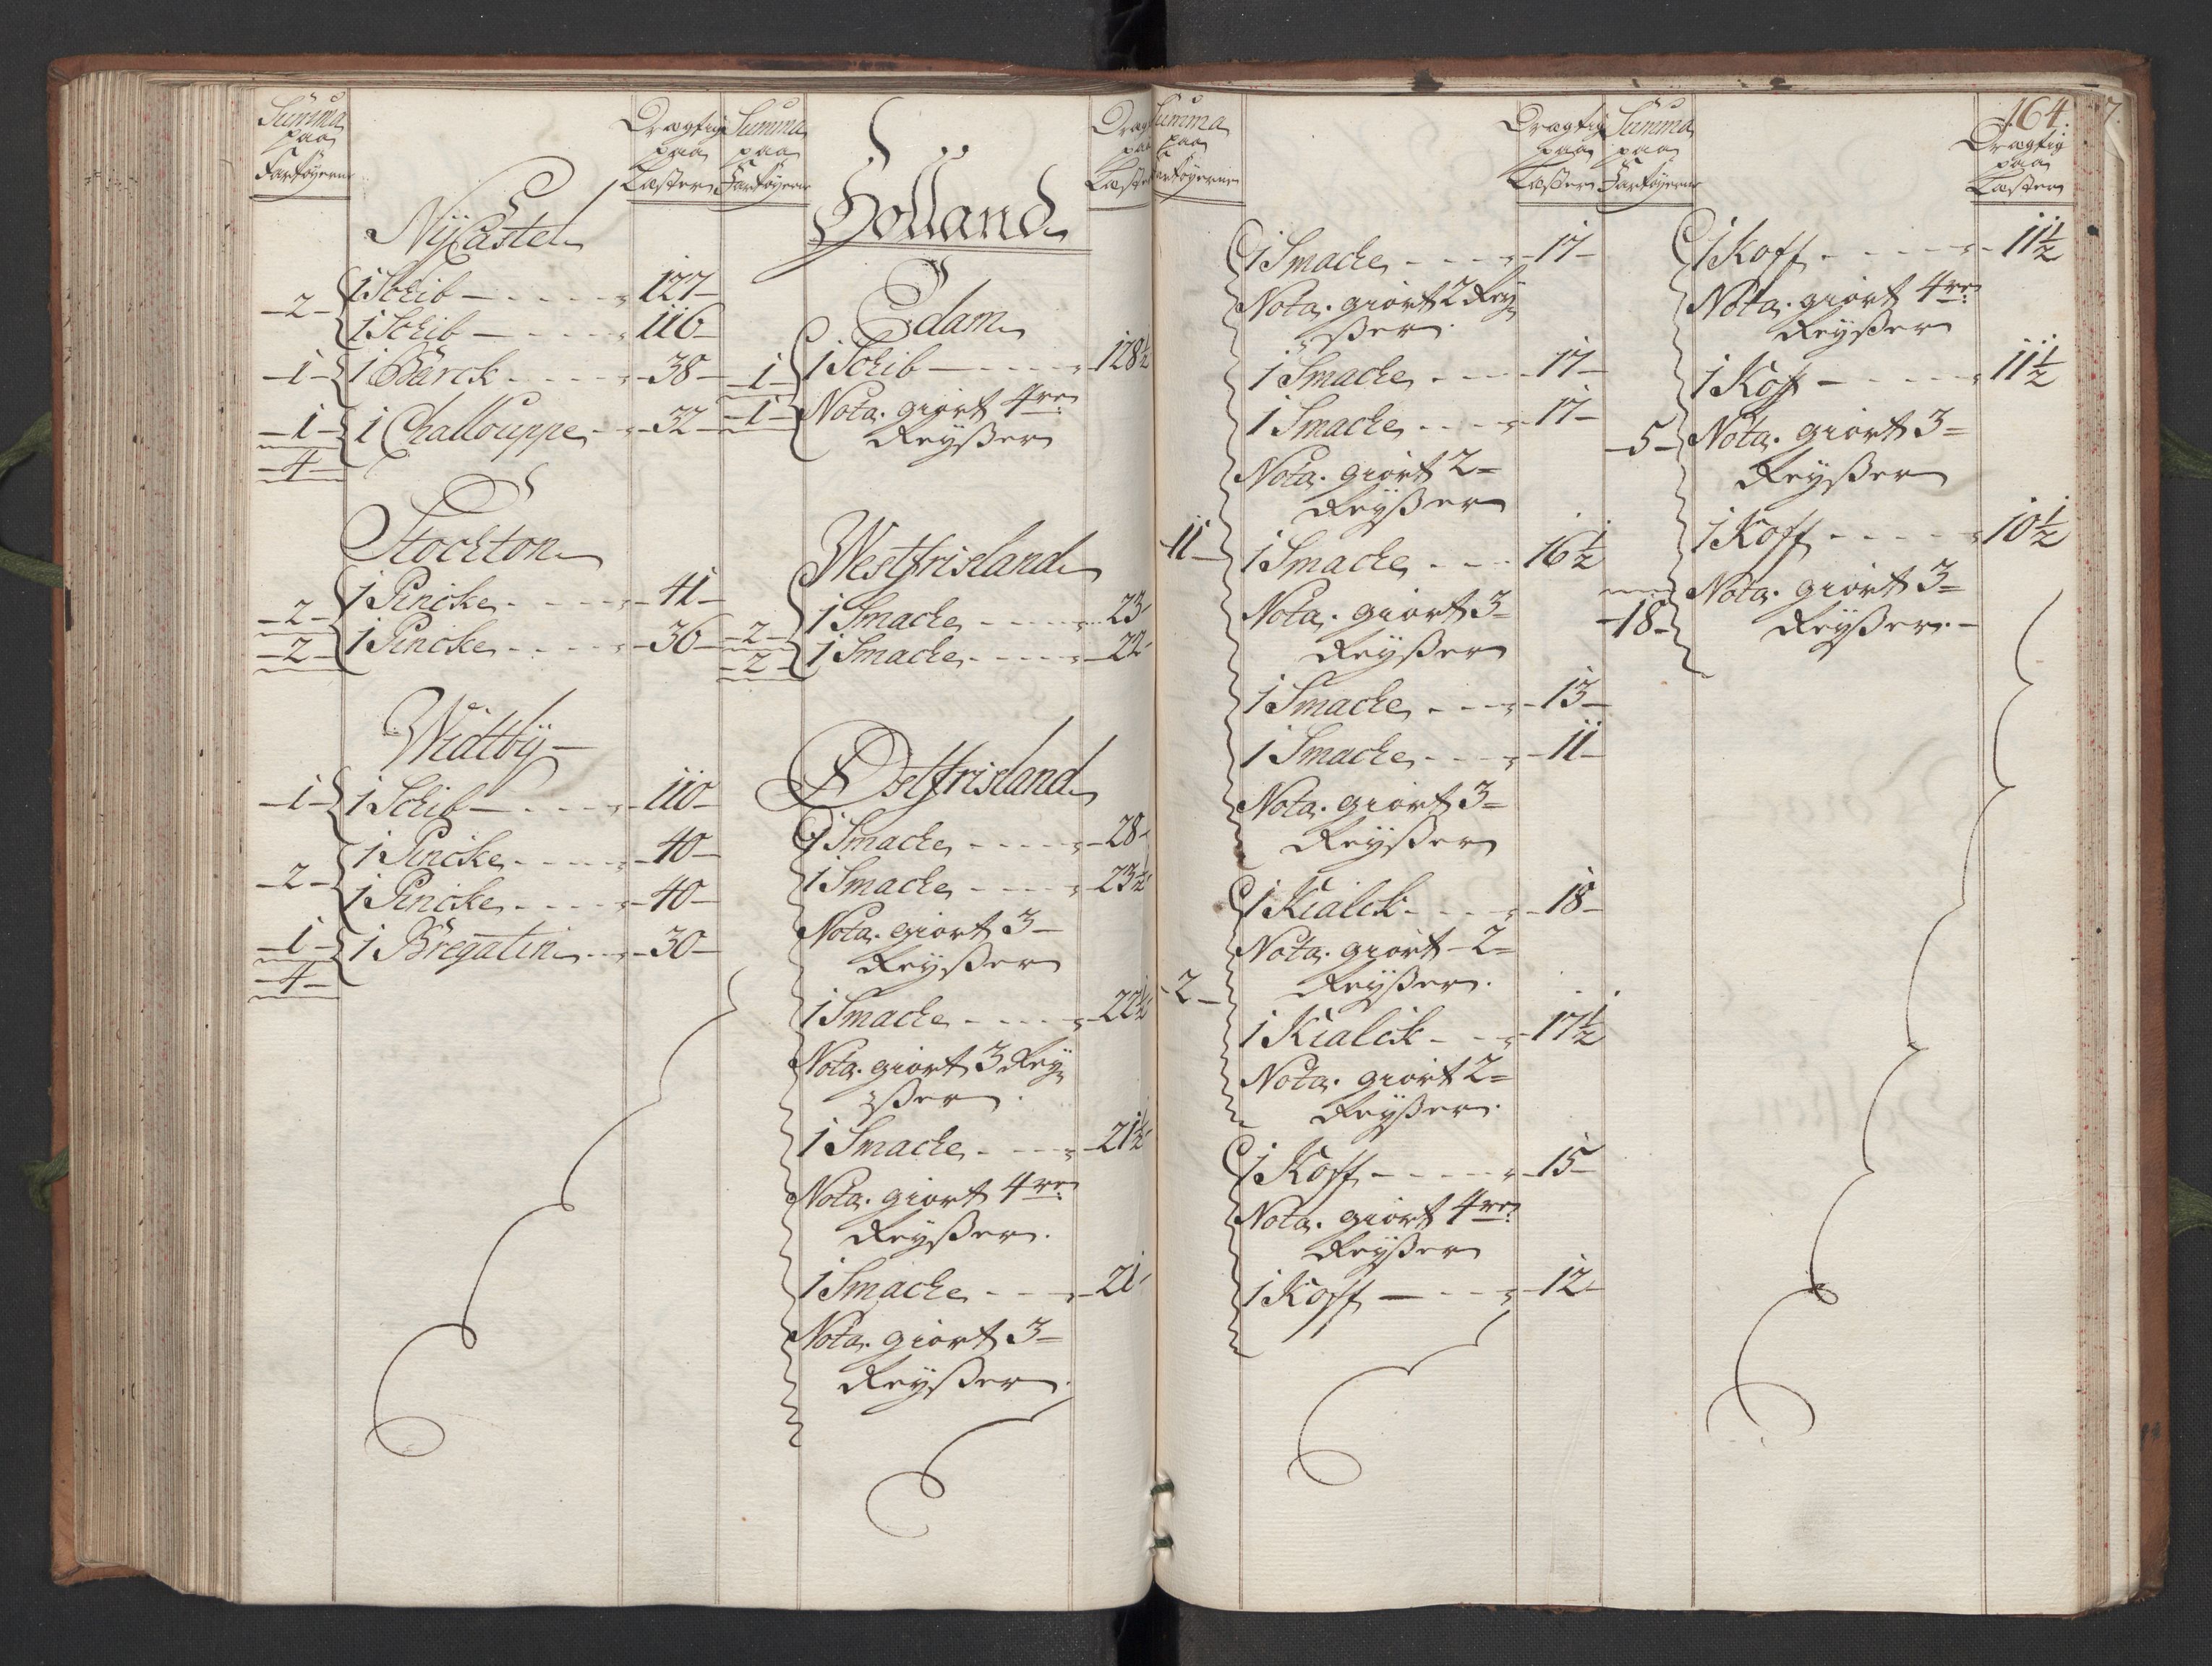 Summa
paa
Fartøyerne
Dragtig
paa
Læster
NyCastel
-2- 1 Schib - 127-
1 Schib - 116-
-1- 1 Barck - 38-
-1- 1 Challouppe - 32-
-4-
Stockton
1 Pincke - 41-
-2- 1 Pincke - 36-
-2-
Widtby
-1- 1 Schib - 110-
1 Pincke - 40-
-2-
1 Pincke - 40-
-1- 1 Bregatin - 30-
-4-
Summa
paa
Fartøyerne
Holland
Edam
-1- 1 Schib - 128½
-1- Nota. giort 4re
Reyßer
Westfrisland
1 Smacke - 23-
-2- 1 Smacke - 22-
-2-
Ostfrisland
1 Smacke - 28-
1 Smacke - 23½
Nota. giort 3-
Reyßer
1 Smacke - 22½
Nota. giort 3 Rey=
=ßer.
1 Smacke - 21½
Nota. giort 4re
Reyßer.
1 Smacke - 21-
Nota. giort 3=
Reyßer.
Summa
paa
Fartøyerne
Dragtig
paa
Læster
1 Smacke - 17-
Nota. giort 2 Rey=
=ßer.
1 Smacke - 17-
1 Smacke - 17-
Nota. giort 2=
Reyßer
-11- 1 Smacke - 16½
Nota. giort 3=
Reyßer
1 Smacke - 13-
1 Smacke - 11-
Nota. giort 3=
Reyßer
1 Kialck - 18-
Nota. giort 2=
Reyßer.
-2-
1 Kialck - 17½
Nota. giort 2=
Reyßer.
1 Koff - 15-
Nota. giort 4re
Reyßer
1 Koff - 12-
164.
Summa
paa
Fartøyerne
Dragtig
paa
Læster
1 Koff - 11½
Nota. giort 4re
Reyßer
1 Koff - 11½
-5- Nota. giort 3=
Reyßer
1 Koff - 10½
Nota. giort 3=
-18- Reyßer.-